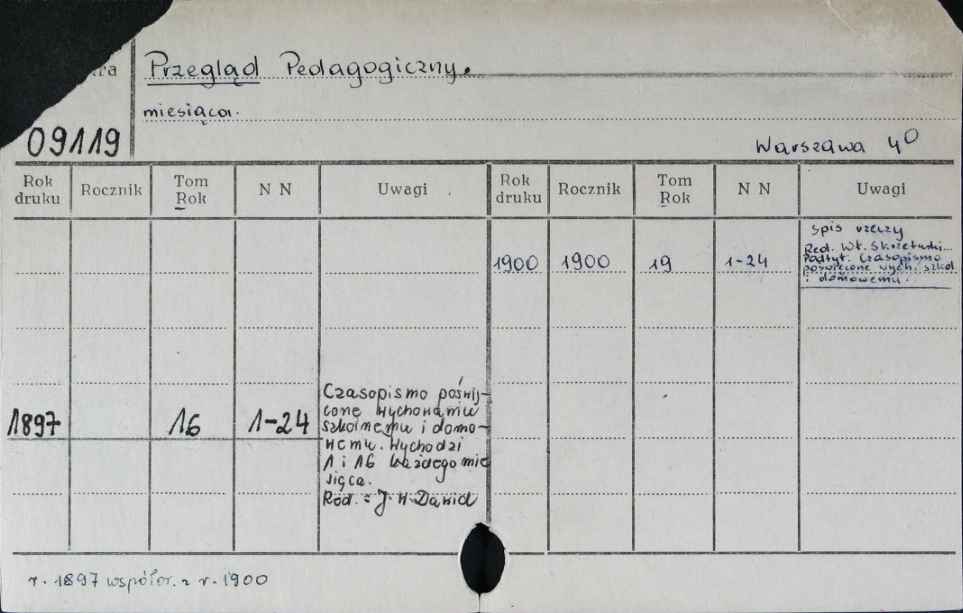 Przegląd Pedagogiczny.
miesiąca.
09119
Warszawa 4⁰
Rok druku Rocznik Tom Rok N N Uwagi Rok druku Rocznik Tom Rok N N Uwagi
1900 1900 19 1-24
spis rzeczy
Red. Wł. Skrzetuski...
Podtyt. Czasopismo
poświęcone wych. szkol
i domowemu.
1897 16 1-24
Czasopismo poświę-
cone wychowaniu
szkolnemu i domo-
wemu. Wychodzi
1 i 16 każdego mie
siąca.
Red. = J. W. Dawid
r. 1897 współopr. z r. 1900